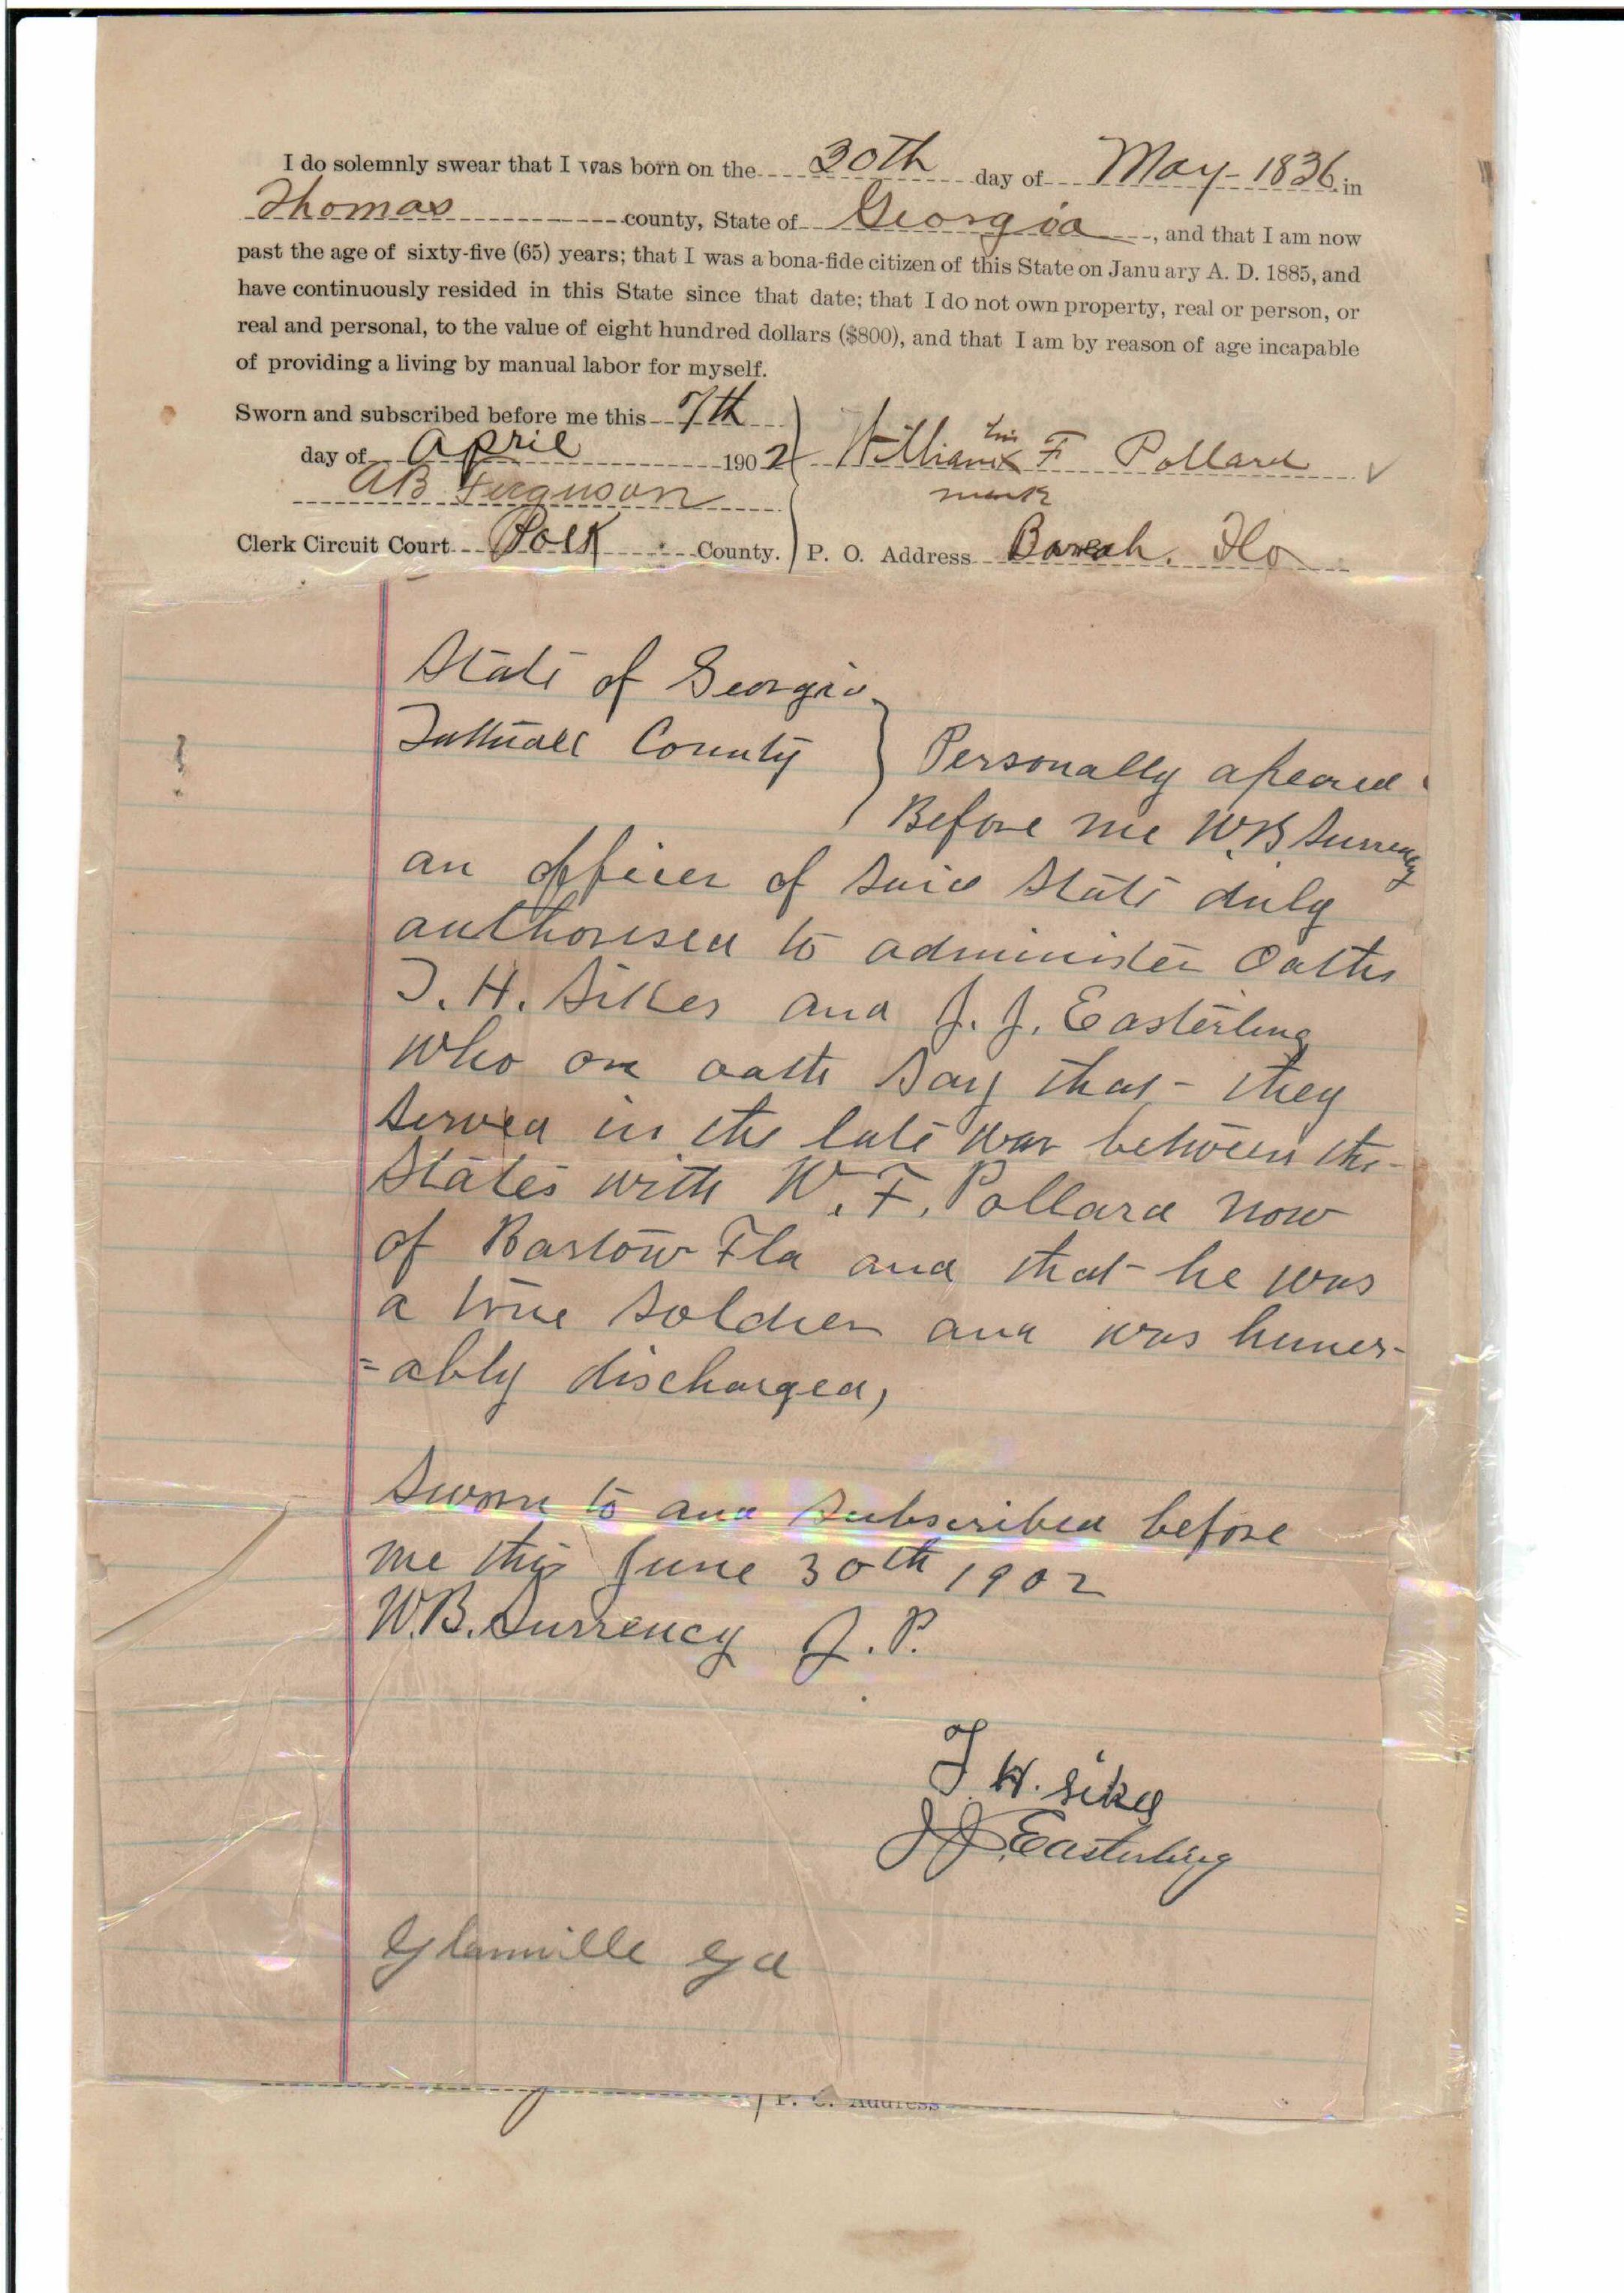 I do solemnly swear that I was born on the 30th day of May - 1836 in
Thomas county, State of Georgia, and that I am now
past the age of sixty-five (65) years; that I was a bona-fide citizen of this State on January A. D. 1885, and
have continuously resided in this State since that date; that I do not own property, real or person, or
real and personal, to the value of eight hundred dollars ($800), and that I am by reason of age incapable
of providing a living by manual labor for myself.
Sworn and subscribed before me this 7th
day of April 1902
his
William X F Pollard
mark
AB Ferguson
Clerk Circuit Court Polk County. P. O. Address Fla
State of Georgia
Tattnall County
Personally apeared
Before me W.B Surrency
an officer of said State duly
authorised to administer Oaths
T. H. Sikes and J. J. Easterling
who on oath say that they
served in the late war between the
States with W. F. Pollard now
of Bartow Fla and that he was
a true soldier and was huner-
=ably discharged,
Sworn to and subscribed before
me this June 30th 1902
W.B. Surrency J. P.
T. H. Sikes
J J Easterling
Glennville Ga
P. O. Address